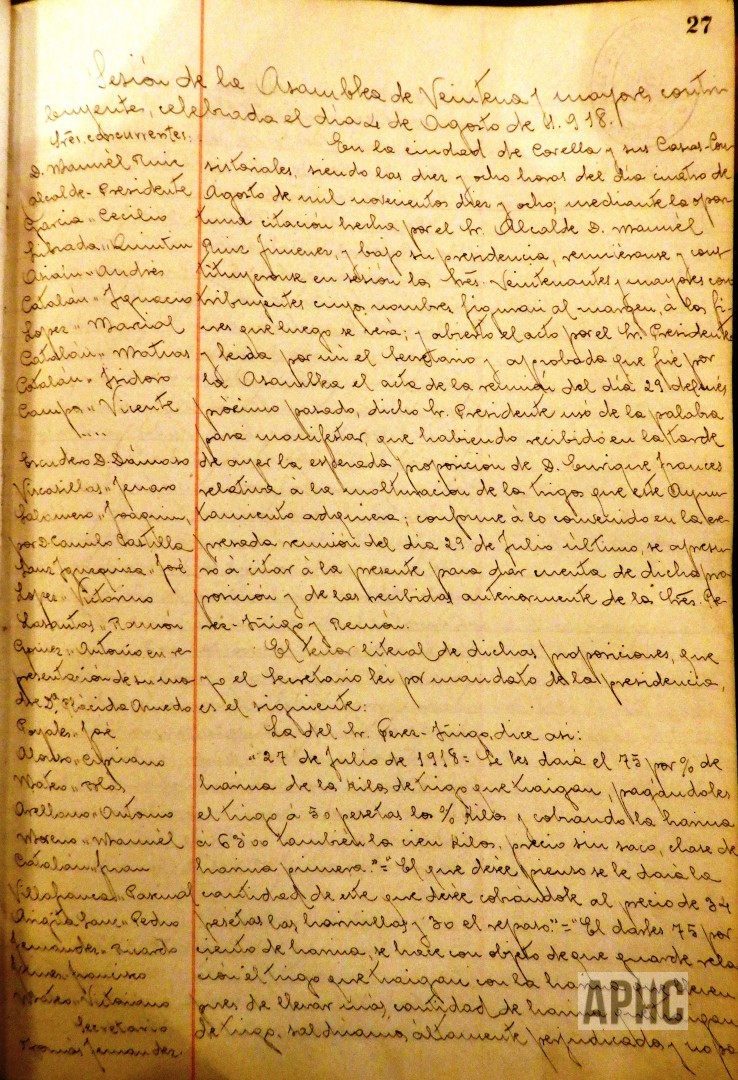 27
Sesión de la Asamblea de Veintena y mayores contri
buyentes, celebrada el día 4 de Agosto de 1.918.
Sres. concurrentes:
D. Manuel Ruiz
Alcalde-Presidente
Garcia " Cecilio
Librada " Quintin
Ariain " Andrés
Catalán " Ignacio
Lopez " Marial
Catalán " Matias
Catalán " Isidoro
Campo " Vicente
....
Escudero D. Dámaso
Virasillas " Jenaro
Salamero " Joaquin,
por D. Camilo Castilla
Sanz " José
Lopez " Victorino
Lasantas " Ramón
Gomez " Antonio en re
presentación de su ma
dre Dª. Plácida Arnedo
Poyales " José
Alonso " Cipriano
Mateo " Blas
Arellano " Antonio
Moreno " Manuel
Catalán " Juan
Villafranca " Pascual
Sanz " Pedro
Fernández " Ricardo
Francisco
Mateo " Victoriano
Secretario
Tomás Fernandez.
En la ciudad de Corella y sus Casas-Con
sistoriales, siendo las diez y ocho horas del día cuatro de
Agosto de mil novecientos diez y ocho; mediante la opor
tuna citación hecha por el Sr. Alcalde D. Manuél
Ruiz Jimenez, y bajo su presidencia, reuniéronse y cons
tituyeronse en sesión los Sres. Veintenantes y mayores con
tribuyentes cuyos nombres figuran al margen, á los fi-
nes que luego se verá; y abierto el acto por el Sr. Presidente
y leida por mi el Secretario y aprobada que fué por
la Asamblea el acta de la reunión del día 29 del mes
próximo pasado, dicho Sr. Presidente usó de la palabra
para manifestar, que habiendo recibido en la tarde
de ayer la esperada proposición de D. Enrique Frances
relativa á la molturación de los trigos que este Ayun
tamiento adquiera; conforme á lo convenido en la ex
presada reunión del día 29 de Julio último, se apresu
ró á citar á la presente para dar cuenta de dicha pro
posición y de las recibidas anteriormente de los Sres. Pe
rez-Iñigo y Remón.
El tenor literal de dichas proposiciones, que
yo el Secretario lei por mandato de la presidencia,
es el siguiente:
La del Sr. Perez-Iñigo, dice asi:
"27 de Julio de 1918 = Se les dará el 75 por % de
harina de los kilos de trigo que traigan, pagándoles
el trigo á 50 pesetas los % kilos y cobrando la harina
á 63'00 tambien los cien kilos, precio sin saco, clase de
harina primera." = "El que desée pienso se le dará la
cantidad de este que desée cobrándole al precio de 34
pesetas las harinillas y 30 el repaso." = "El darles 75 por
ciento de harina, se hace con objeto de que guarde rela
ción el trigo que traigan con la harina que lleven
pues de llevar más cantidad de harina que traigan
de trigo, saldriamos altamente perjudicados y no po
APHC